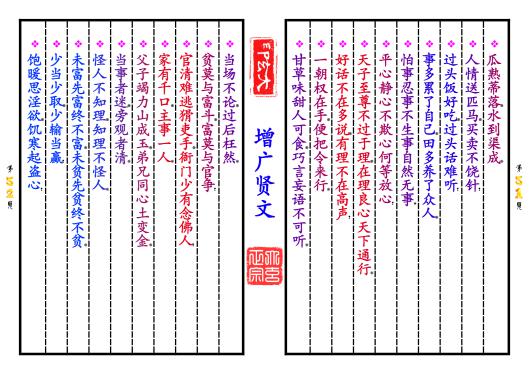 瓜熟蒂落水到渠成。
人情送匹马买卖不饶针。
过头饭好吃过头话难听。
事多累了自己田多养了众人。
怕事忍事不生事自然无事。
平心静心不欺心何等放心。
天子至尊不过于理在理良心天下通行。
好话不在多说有理不在高声。
一朝权在手便把令来行。
甘草味甜人可食巧言妄语不可听。
增广贤文
当场不论过后枉然。
贫莫与富斗富莫与官争。
官清难逃猾吏手衙门少有念佛人。
家有千口主事一人。
父子竭力山成玉弟兄同心土变金。
当事者迷旁观者清。
怪人不知理知理不怪人。
未富先富终不富未贫先贫终不贫。
少当少取少输当赢。
饱暖思淫欲饥寒起盗心。